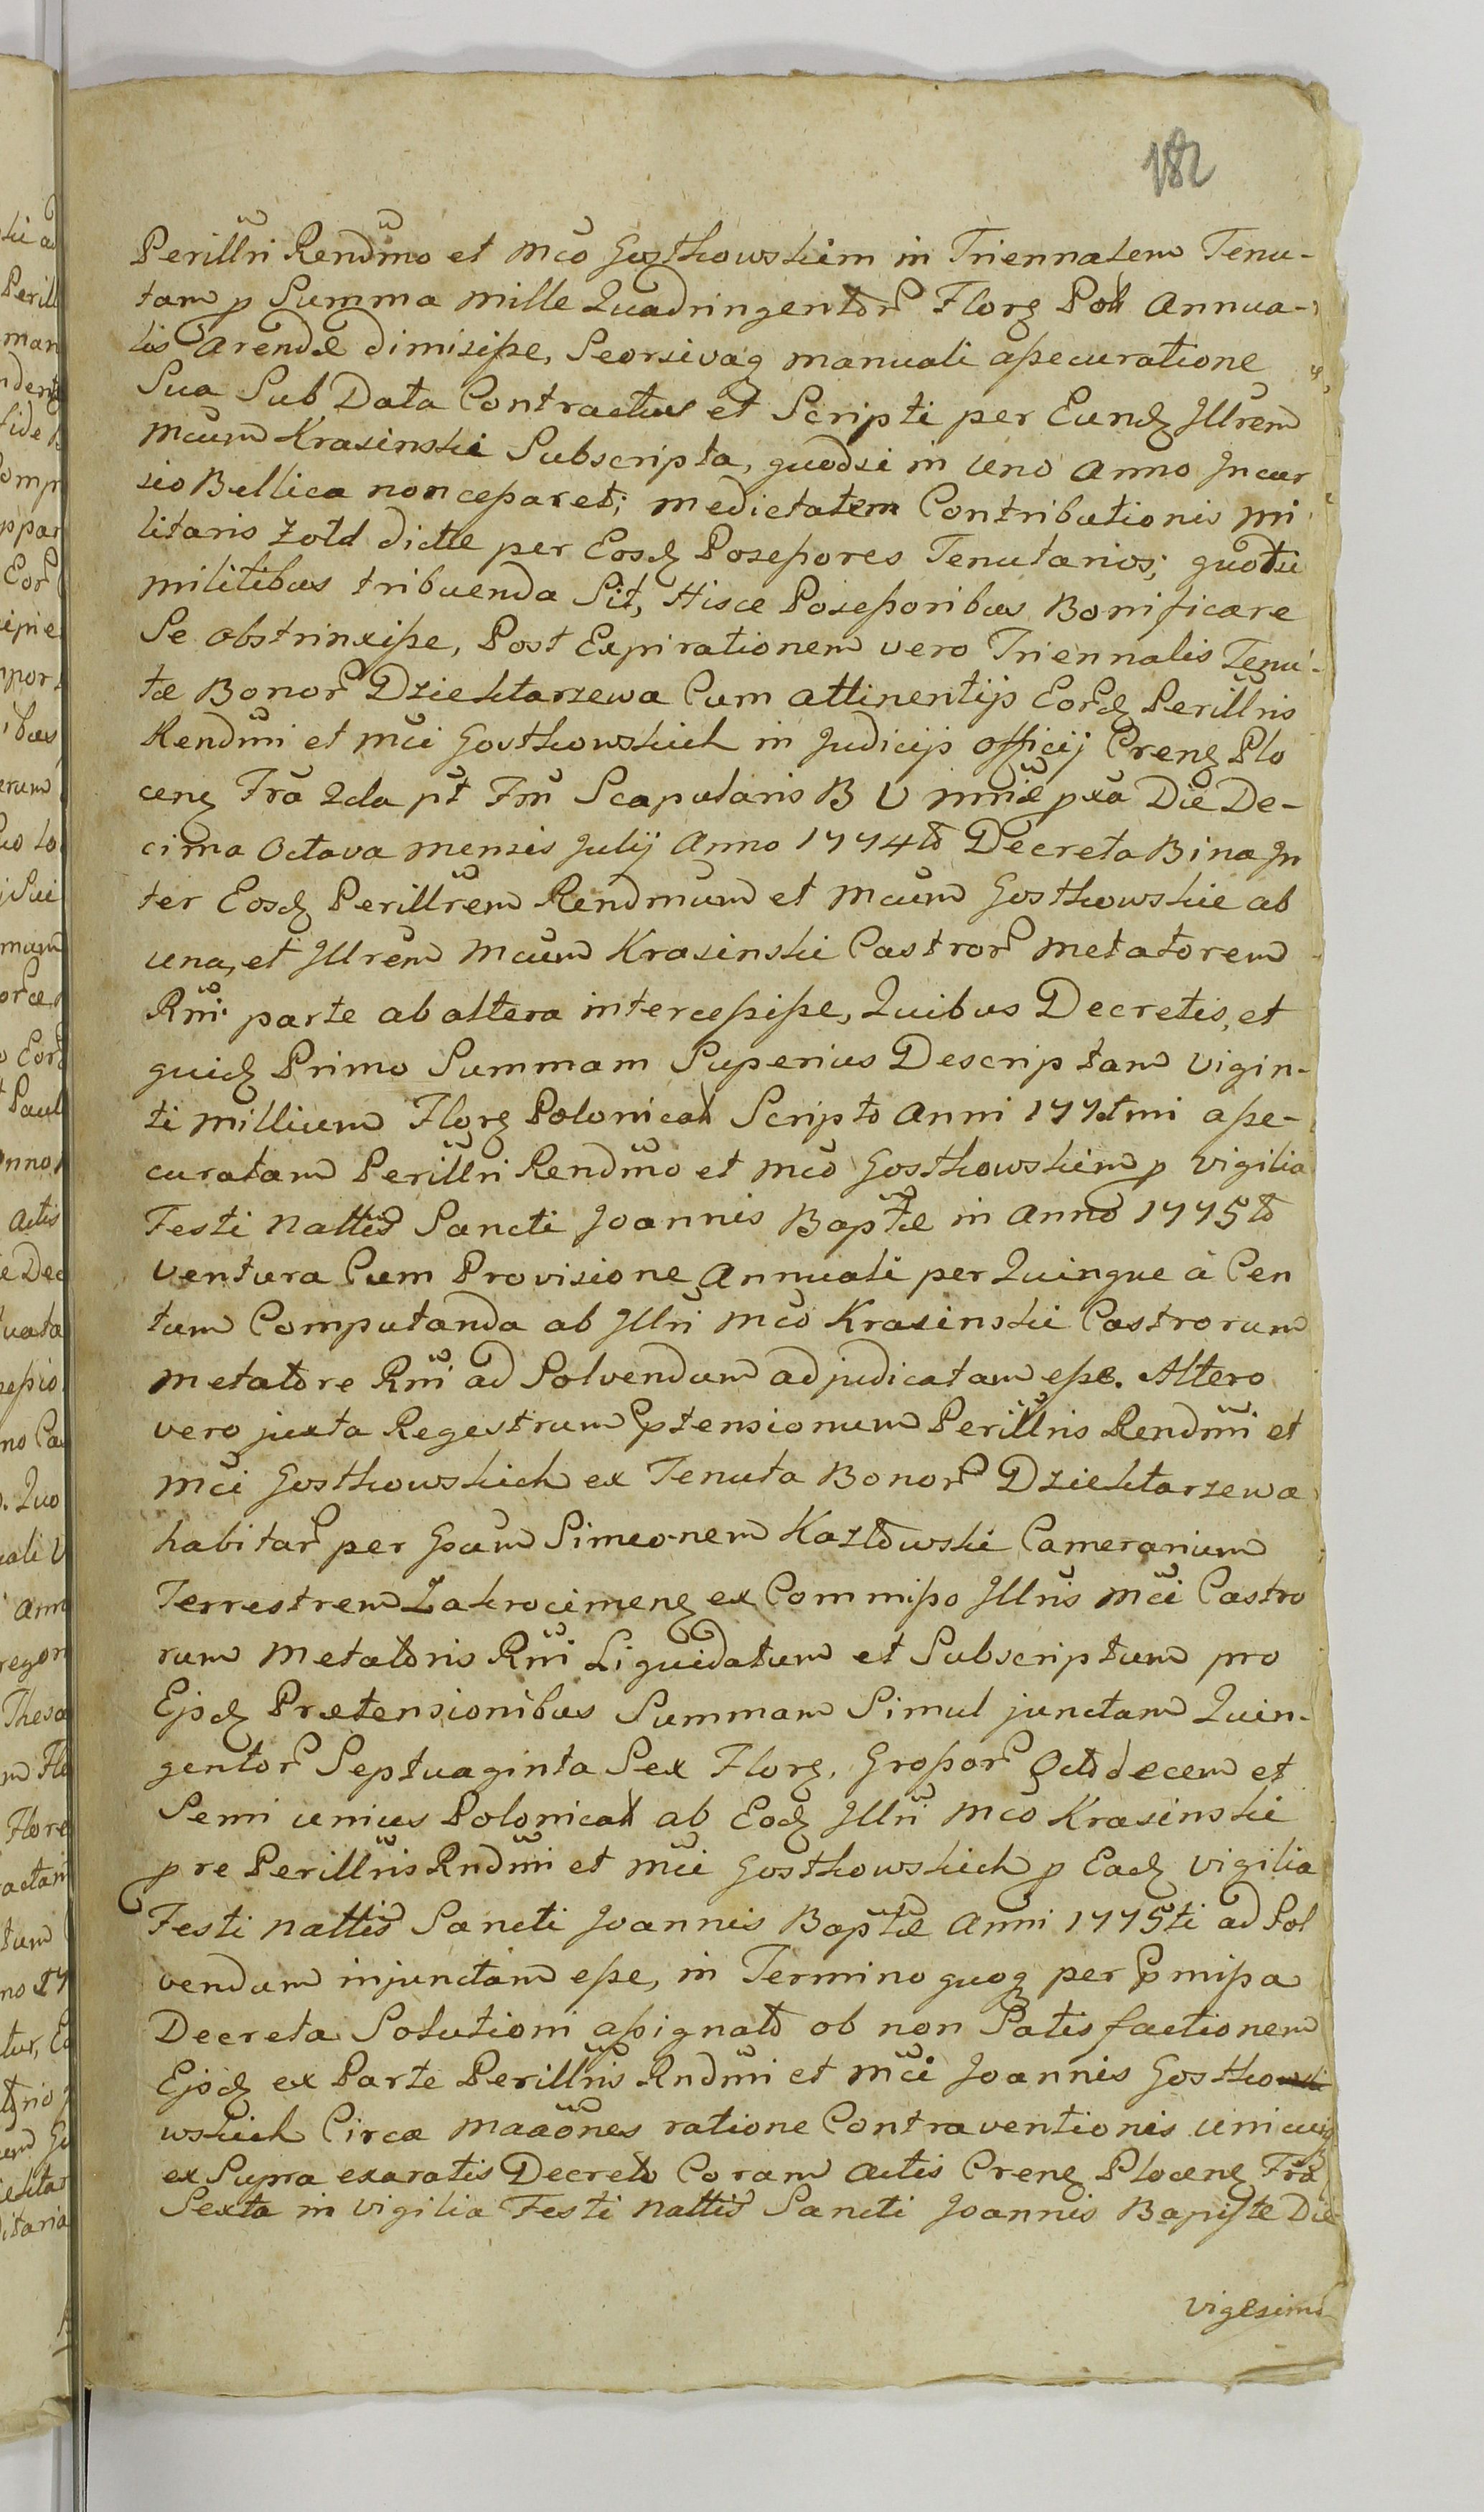 182
Perillri Rendmo et Mco Gosthowskim in Triennalem Tenu-
tam p Summa Mille Quadringentor Florg Poll Annua-
lis Arendæ dimisisse, Seorsivaq manuali assecuratione
Sua Sub Data Contractus et Scripti per Eundq Jllrem
Mcum Krasinski Subscripta, quodsi in uno Anno Jncur
sio Bellica non cessaret; medietatem Contributionis Mi
litaris Zold dictæ per Eosdq Possessores Tenutarios; quotu
militibus tribuenda Sit, Hisce Possessoribus Bonificare
Se Obstrinxisse, Post Expirationem vero Triennalis Tenu-
tæ Bonor Dziektarzewa Cum attinentijs Eordq Perillris
Rendmi et Mci Gosthowskich in Judicijs Officij Creng Plo
ceng Fra 2da pt Fm Scapularis B V Mriæ pxa Die De-
cima Octava Mensis Julij Anno 1774to Decreta Bina Jn
ter Eosdq Perillrem Rendmum et Mcum Gosthowskie ab
una, et Jllrem Mcum Krasinski Castror Metatorem
Rni parte ab altera intercessisse, Quibus Decretis, et
quidq Primo Summam Superius Descriptam Vigin-
ti Millium Florg Polonical Scripto Anni 177tmi asse-
curatam Perillri Rendmo et Mco Gosthowskim p Vigilia
Festi Nattis Sancti Joannis Baptæ in Anno 1775to
Ventura Cum Provisione Annuali per Quinque à Cen
tum Computanda ab Jllri Mco Krasinski Castrorum
Metatore Rni ad Solvendum adjudicatam esse. Altero
vero juxta Regestrum Ptensionum Perillris Rendmi et
Mci Gosthowskich ex Tenuta Bonor Dziektarzewa
habitar per Gsum Simeonem Kozlowski Camerarium
Terrestrem Zakrocimeng ex Commisso Jllris Mci Castro
rum Metatoris Rni Liquidatum et Subscriptum pro
Ejsdq Prætensionibus Summam Simul junctam Quin-
gentor Septuaginta Sex Florg. Grossor Octodecem et
Semi unius Polonical ab Eodq Jllri Mco Krasinski
p re Perillris Rndmi et Mci Gosthowskich p Eadq Vigilia
Festi Nattis Sancti Joannis Baptæ Anni 1775ti ad Sol
vendum injunctam esse, in Termino quoq per Pmissa
Decreta Solutioni assignato ob non Satisfactionem
Ejsdq ex Parte Perillris Rndmi et Mci Joannis Gostho
wskich Circa Maaones ratione Contraventionis unicuiq
ex Supra exaratis Decreto Coram Actis Creng Ploceng Fra
Sexta in Vigilia Festi Nattis Sancti Joannis Bapistæ Die
Vigesima